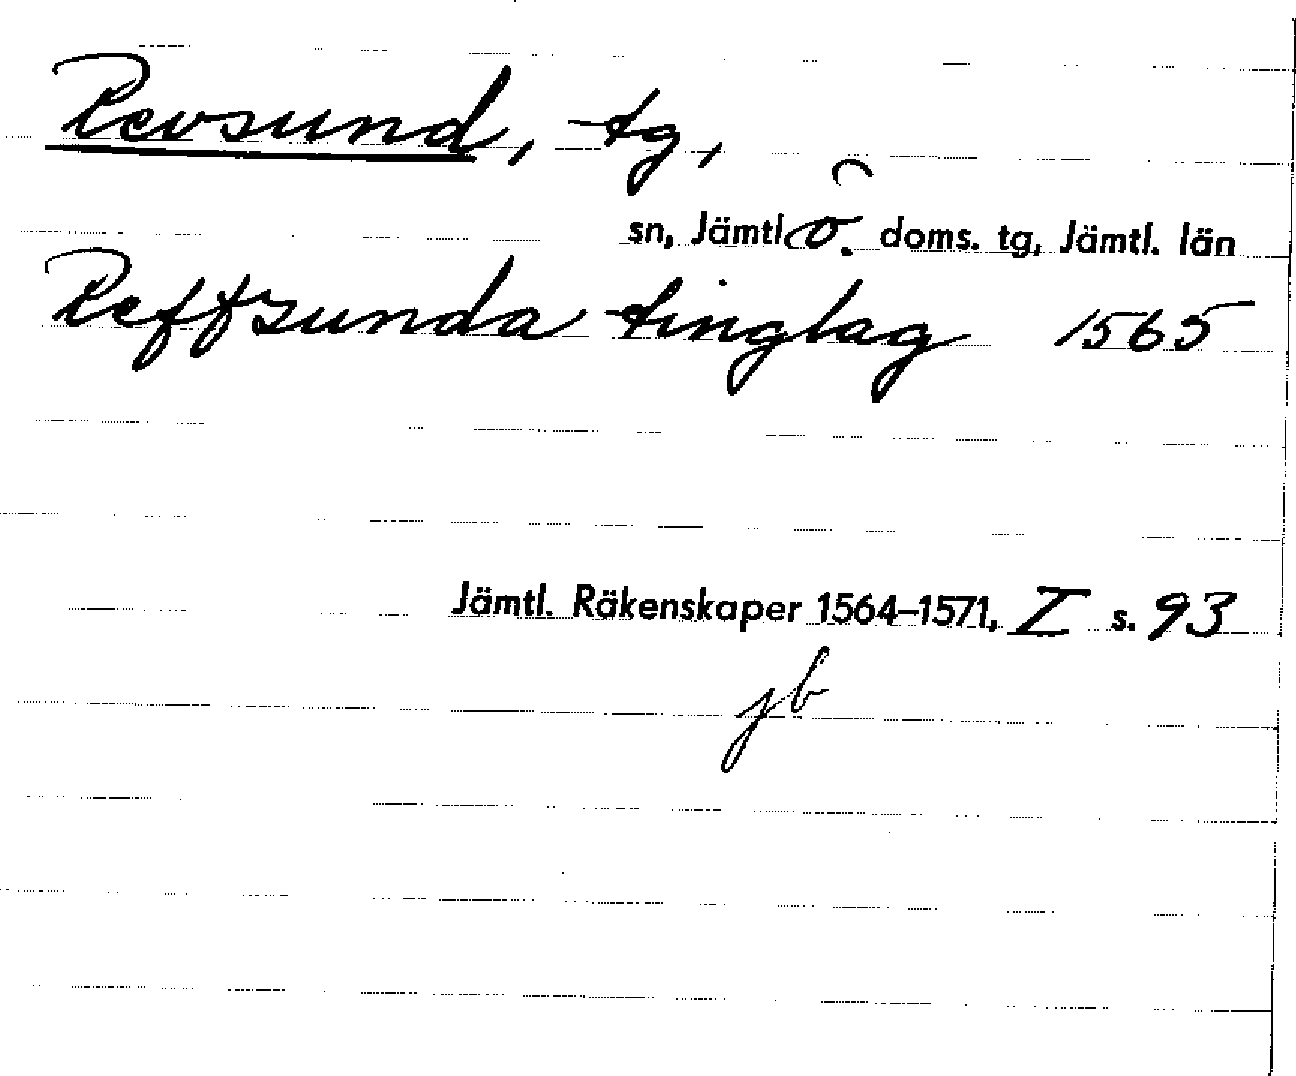 Revsund, tg,
sn, Jämtl ö. doms. tg, Jämtl. län
Reffsunda tinglag 1565
Jämtl. Räkenskaper 1564–1571, I s. 93
jb